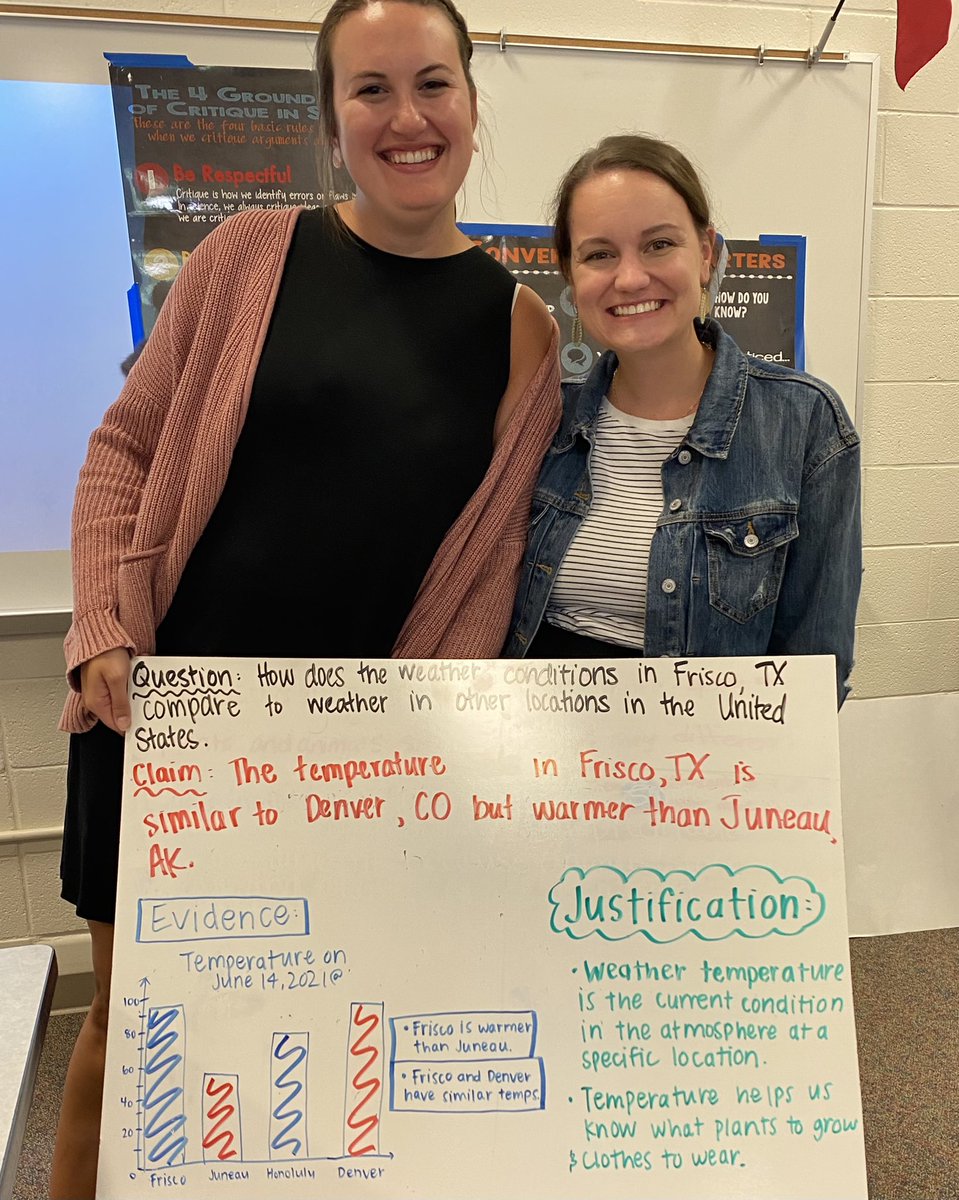 THE 4 GROUND
OF CRITIQUE IN S
These are the four basic rules
when we critique arguments
1 Be Respectful
Critique is how we identify errors or flaws
in science, we always critique ideas
we are
2
CONVER RTERS
HOW DO YOU
KNOW?
ticed...
Question: How does the weather conditions in Frisco, TX
compare to weather in other locations in the United
States.
Claim: The temperature in Frisco, TX is
similar to Denver, CO but warmer than Juneau,
AK.
Evidence:
Temperature on
June 14, 2021@
100
80
60
40
20
0
Frisco Juneau Honolulu Denver
• Frisco is warmer
than Juneau.
• Frisco and Denver
have similar temps.
Justification:
• Weather temperature
is the current condition
in the atmosphere at a
specific location.
• Temperature helps us
know what plants to grow
& clothes to wear.